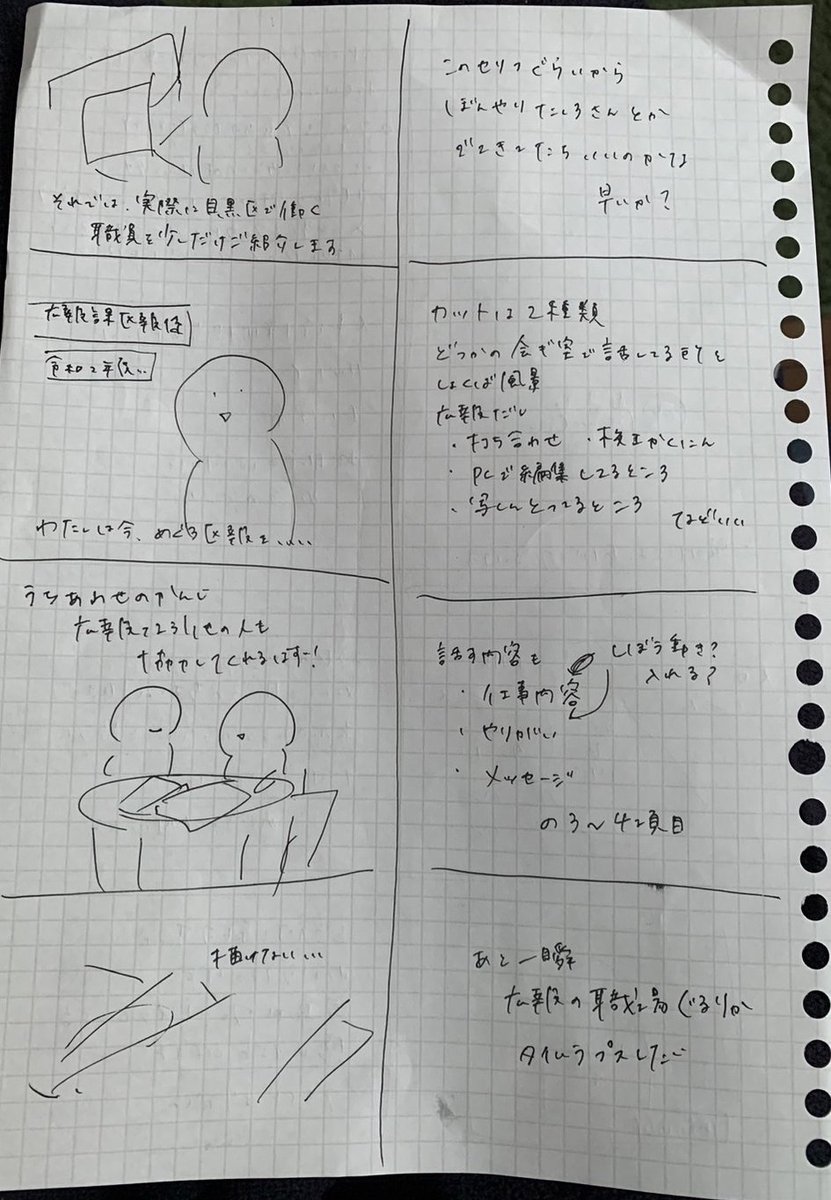 それでは、実際に目黒区で働く
職員を少しだけご紹介します
このセリフぐらいから
ぼんやりたいろさんとか
でてきてたらいいのかな
早いか?
広報課区報係
令和2年度…
わたしは今、めぐろ区報を……
カットは2種類
どっかの会ぎ室で話してる所と
しょくば風景
広報だし
・打ち合わせ ・校正かくにん
・PCで編集してるところ
・写しんとってるところ
などいい
うちあわせのかんじ
広報で
の人も
してくれるはずー!
話す内容も
・仕事内容
・やりがい
・メッセージ
の3〜4項目
しぼう動き?
入れる?
描けない…
あと一瞬
広報の職場ぐるりか
タイムラプスしたい